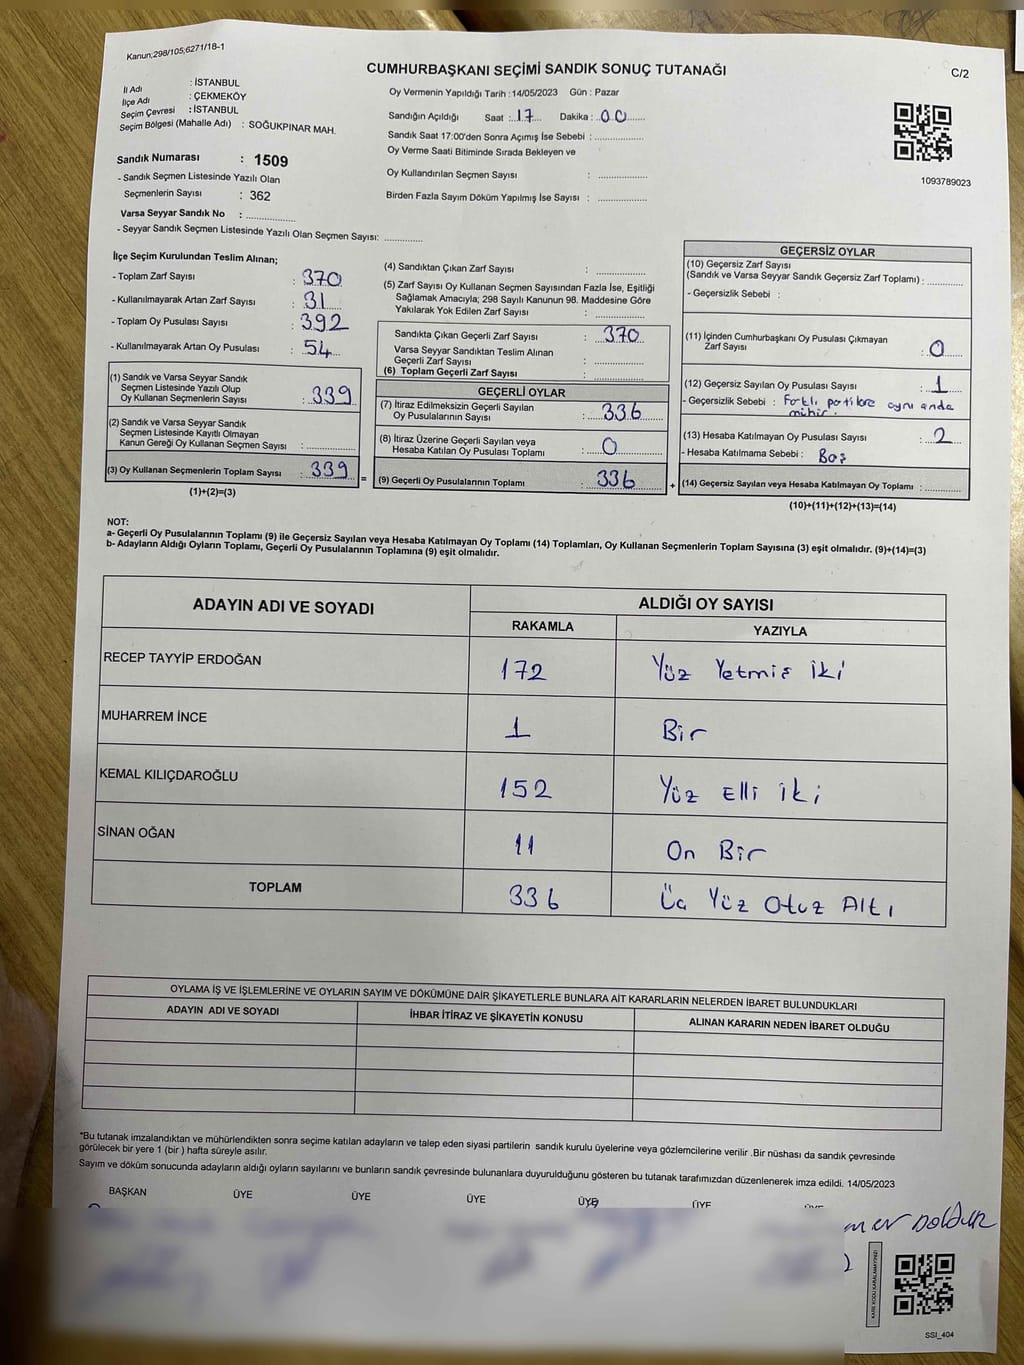 Kanun;298/105;6271/18-1
CUMHURBAŞKANI SEÇİMİ SANDIK SONUÇ TUTANAĞI
C/2
İl Adı : İSTANBUL
İlçe Adı : ÇEKMEKÖY
Seçim Çevresi : İSTANBUL
Seçim Bölgesi (Mahalle Adı) : SOĞUKPINAR MAH.
Sandık Numarası : 1509
- Sandık Seçmen Listesinde Yazılı Olan
Seçmenlerin Sayısı : 362
Varsa Seyyar Sandık No : ..............
- Seyyar Sandık Seçmen Listesinde Yazılı Olan Seçmen Sayısı: ............
Oy Vermenin Yapıldığı Tarih : 14/05/2023 Gün : Pazar
Sandığın Açıldığı Saat : 17 Dakika : 00
Sandık Saat 17:00'den Sonra Açımış İse Sebebi : ..............
Oy Verme Saati Bitiminde Sırada Bekleyen ve
Oy Kullandırılan Seçmen Sayısı : ..............
Birden Fazla Sayım Döküm Yapılmış İse Sayısı : ..............
1093789023
İlçe Seçim Kurulundan Teslim Alınan;
- Toplam Zarf Sayısı : 370
- Kullanılmayarak Artan Zarf Sayısı : 31
- Toplam Oy Pusulası Sayısı : 392
- Kullanılmayarak Artan Oy Pusulası : 54
(1) Sandık ve Varsa Seyyar Sandık
Seçmen Listesinde Yazılı Olup
Oy Kullanan Seçmenlerin Sayısı : 339
(2) Sandık ve Varsa Seyyar Sandık
Seçmen Listesinde Kayıtlı Olmayan
Kanun Gereği Oy Kullanan Seçmen Sayısı : ..............
(3) Oy Kullanan Seçmenlerin Toplam Sayısı : 339
(1)+(2)=(3)
=
(4) Sandıktan Çıkan Zarf Sayısı : ..............
(5) Zarf Sayısı Oy Kullanan Seçmen Sayısından Fazla İse, Eşitliği
Sağlamak Amacıyla; 298 Sayılı Kanunun 98. Maddesine Göre
Yakılarak Yok Edilen Zarf Sayısı : ..............
Sandıkta Çıkan Geçerli Zarf Sayısı : 370
Varsa Seyyar Sandıktan Teslim Alınan
Geçerli Zarf Sayısı : ..............
(6) Toplam Geçerli Zarf Sayısı : ..............
GEÇERLİ OYLAR
(7) İtiraz Edilmeksizin Geçerli Sayılan
Oy Pusulalarının Sayısı : 336
(8) İtiraz Üzerine Geçerli Sayılan veya
Hesaba Katılan Oy Pusulası Toplamı : 0
(9) Geçerli Oy Pusulalarının Toplamı : 336
+
GEÇERSİZ OYLAR
(10) Geçersiz Zarf Sayısı
(Sandık ve Varsa Seyyar Sandık Geçersiz Zarf Toplamı) : ............
- Geçersizlik Sebebi :
(11) İçinden Cumhurbaşkanı Oy Pusulası Çıkmayan
Zarf Sayısı : 0
(12) Geçersiz Sayılan Oy Pusulası Sayısı : 1
- Geçersizlik Sebebi : Farklı partilere aynı anda
mühür.
(13) Hesaba Katılmayan Oy Pusulası Sayısı : 2
- Hesaba Katılmama Sebebi : Boş
(14) Geçersiz Sayılan veya Hesaba Katılmayan Oy Toplamı : ............
(10)+(11)+(12)+(13)=(14)
NOT:
a- Geçerli Oy Pusulalarının Toplamı (9) ile Geçersiz Sayılan veya Hesaba Katılmayan Oy Toplamı (14) Toplamları, Oy Kullanan Seçmenlerin Toplam Sayısına (3) eşit olmalıdır. (9)+(14)=(3)
b- Adayların Aldığı Oyların Toplamı, Geçerli Oy Pusulalarının Toplamına (9) eşit olmalıdır.
ADAYIN ADI VE SOYADI ALDIĞI OY SAYISI
RAKAMLA YAZIYLA
RECEP TAYYİP ERDOĞAN 172 Yüz Yetmiş İki
MUHARREM İNCE 1 Bir
KEMAL KILIÇDAROĞLU 152 Yüz Elli İki
SİNAN OĞAN 11 On Bir
TOPLAM 336 Üç Yüz Otuz Altı
OYLAMA İŞ VE İŞLEMLERİNE VE OYLARIN SAYIM VE DÖKÜMÜNE DAİR ŞİKAYETLERLE BUNLARA AİT KARARLARIN NELERDEN İBARET BULUNDUKLARI
ADAYIN ADI VE SOYADI İHBAR İTİRAZ VE ŞİKAYETİN KONUSU ALINAN KARARIN NEDEN İBARET OLDUĞU
"Bu tutanak imzalandıktan ve mühürlendikten sonra seçime katılan adayların ve talep eden siyasi partilerin sandık kurulu üyelerine veya gözlemcilerine verilir .Bir nüshası da sandık çevresinde
görülecek bir yere 1 (bir ) hafta süreyle asılır.
Sayım ve döküm sonucunda adayların aldığı oyların sayılarını ve bunların sandık çevresinde bulunanlara duyurulduğunu gösteren bu tutanak tarafımızdan düzenlenerek imza edildi. 14/05/2023
BAŞKAN ÜYE ÜYE ÜYE ÜYE ÜYE
KARE KODU KARALAMAYINIZ!
SSİ_404